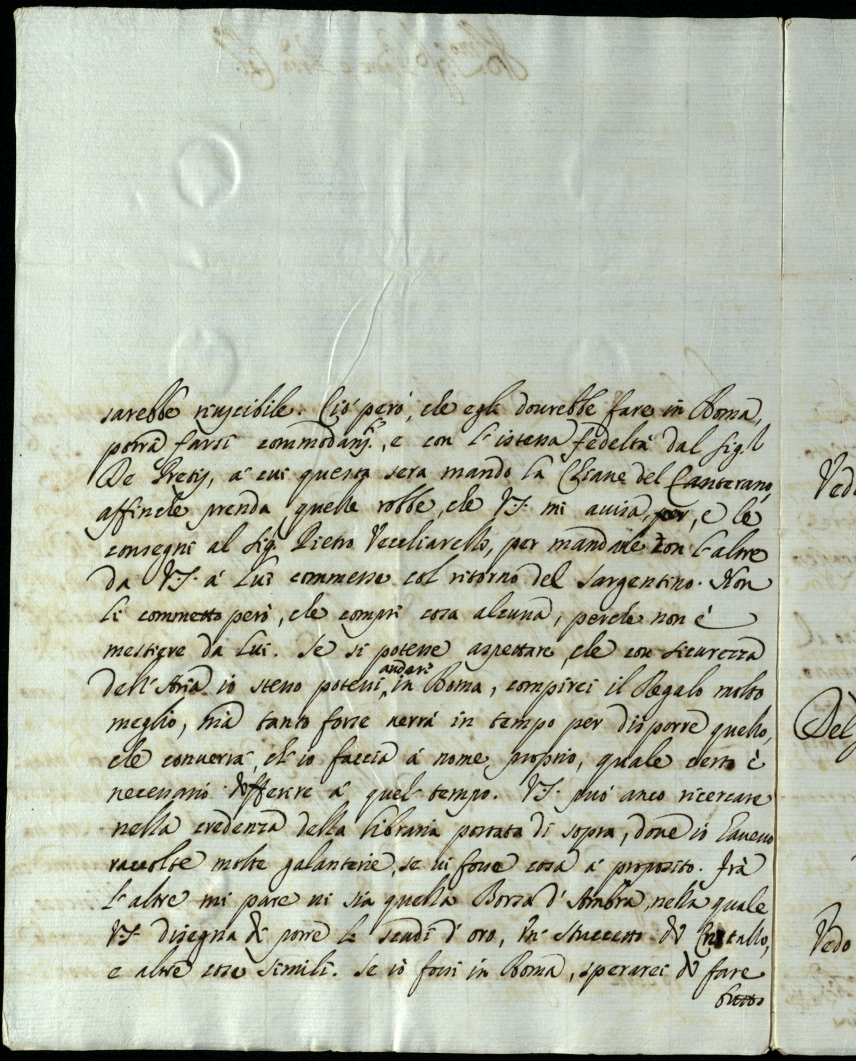 sarebbe riuscibile. Ciò però, che egli dourebbe fare in Roma,
potrà farsi commodam.te, e con l'istessa fedeltà dal Sig.r
De Pretis, à cui questa sera mando la Chiaue del Canterano,
affinche prenda quelle robbe, che V.S. mi auisa, e le
consegni al Sig.r Pietro Vecchiarello, per mandarle con l'altre
da V.S. à Lui commesse col ritorno del Sargentino. Non
li commetto però, che compri cosa alcuna, perche non è
mestiere da Lui. Se si potesse aspettare, che con sicurezza
dell'Aria io stesso potessi andare in Roma, compirei il Regalo molto
meglio, mà tanto forse uerrà in tempo per disporre quello,
che conuerrà, ch'io faccia à nome proprio, quale certo è
necessario offerire à quel tempo. V.S. può anco ricercare
nella credenza della libraria portata di sopra, doue io haueuo
raccolte molte galanterie, se ui fosse cosa à proposito. Frà
l'altre mi pare ui sia quella Borza d'Ambra, nella quale
V.S. disegna di porre li scudi d'oro, un stuccetto di Cristallo,
e altre cose simili. Se io fossi in Roma, sperarei di fare
tutto
Vedo
Del
Vedo